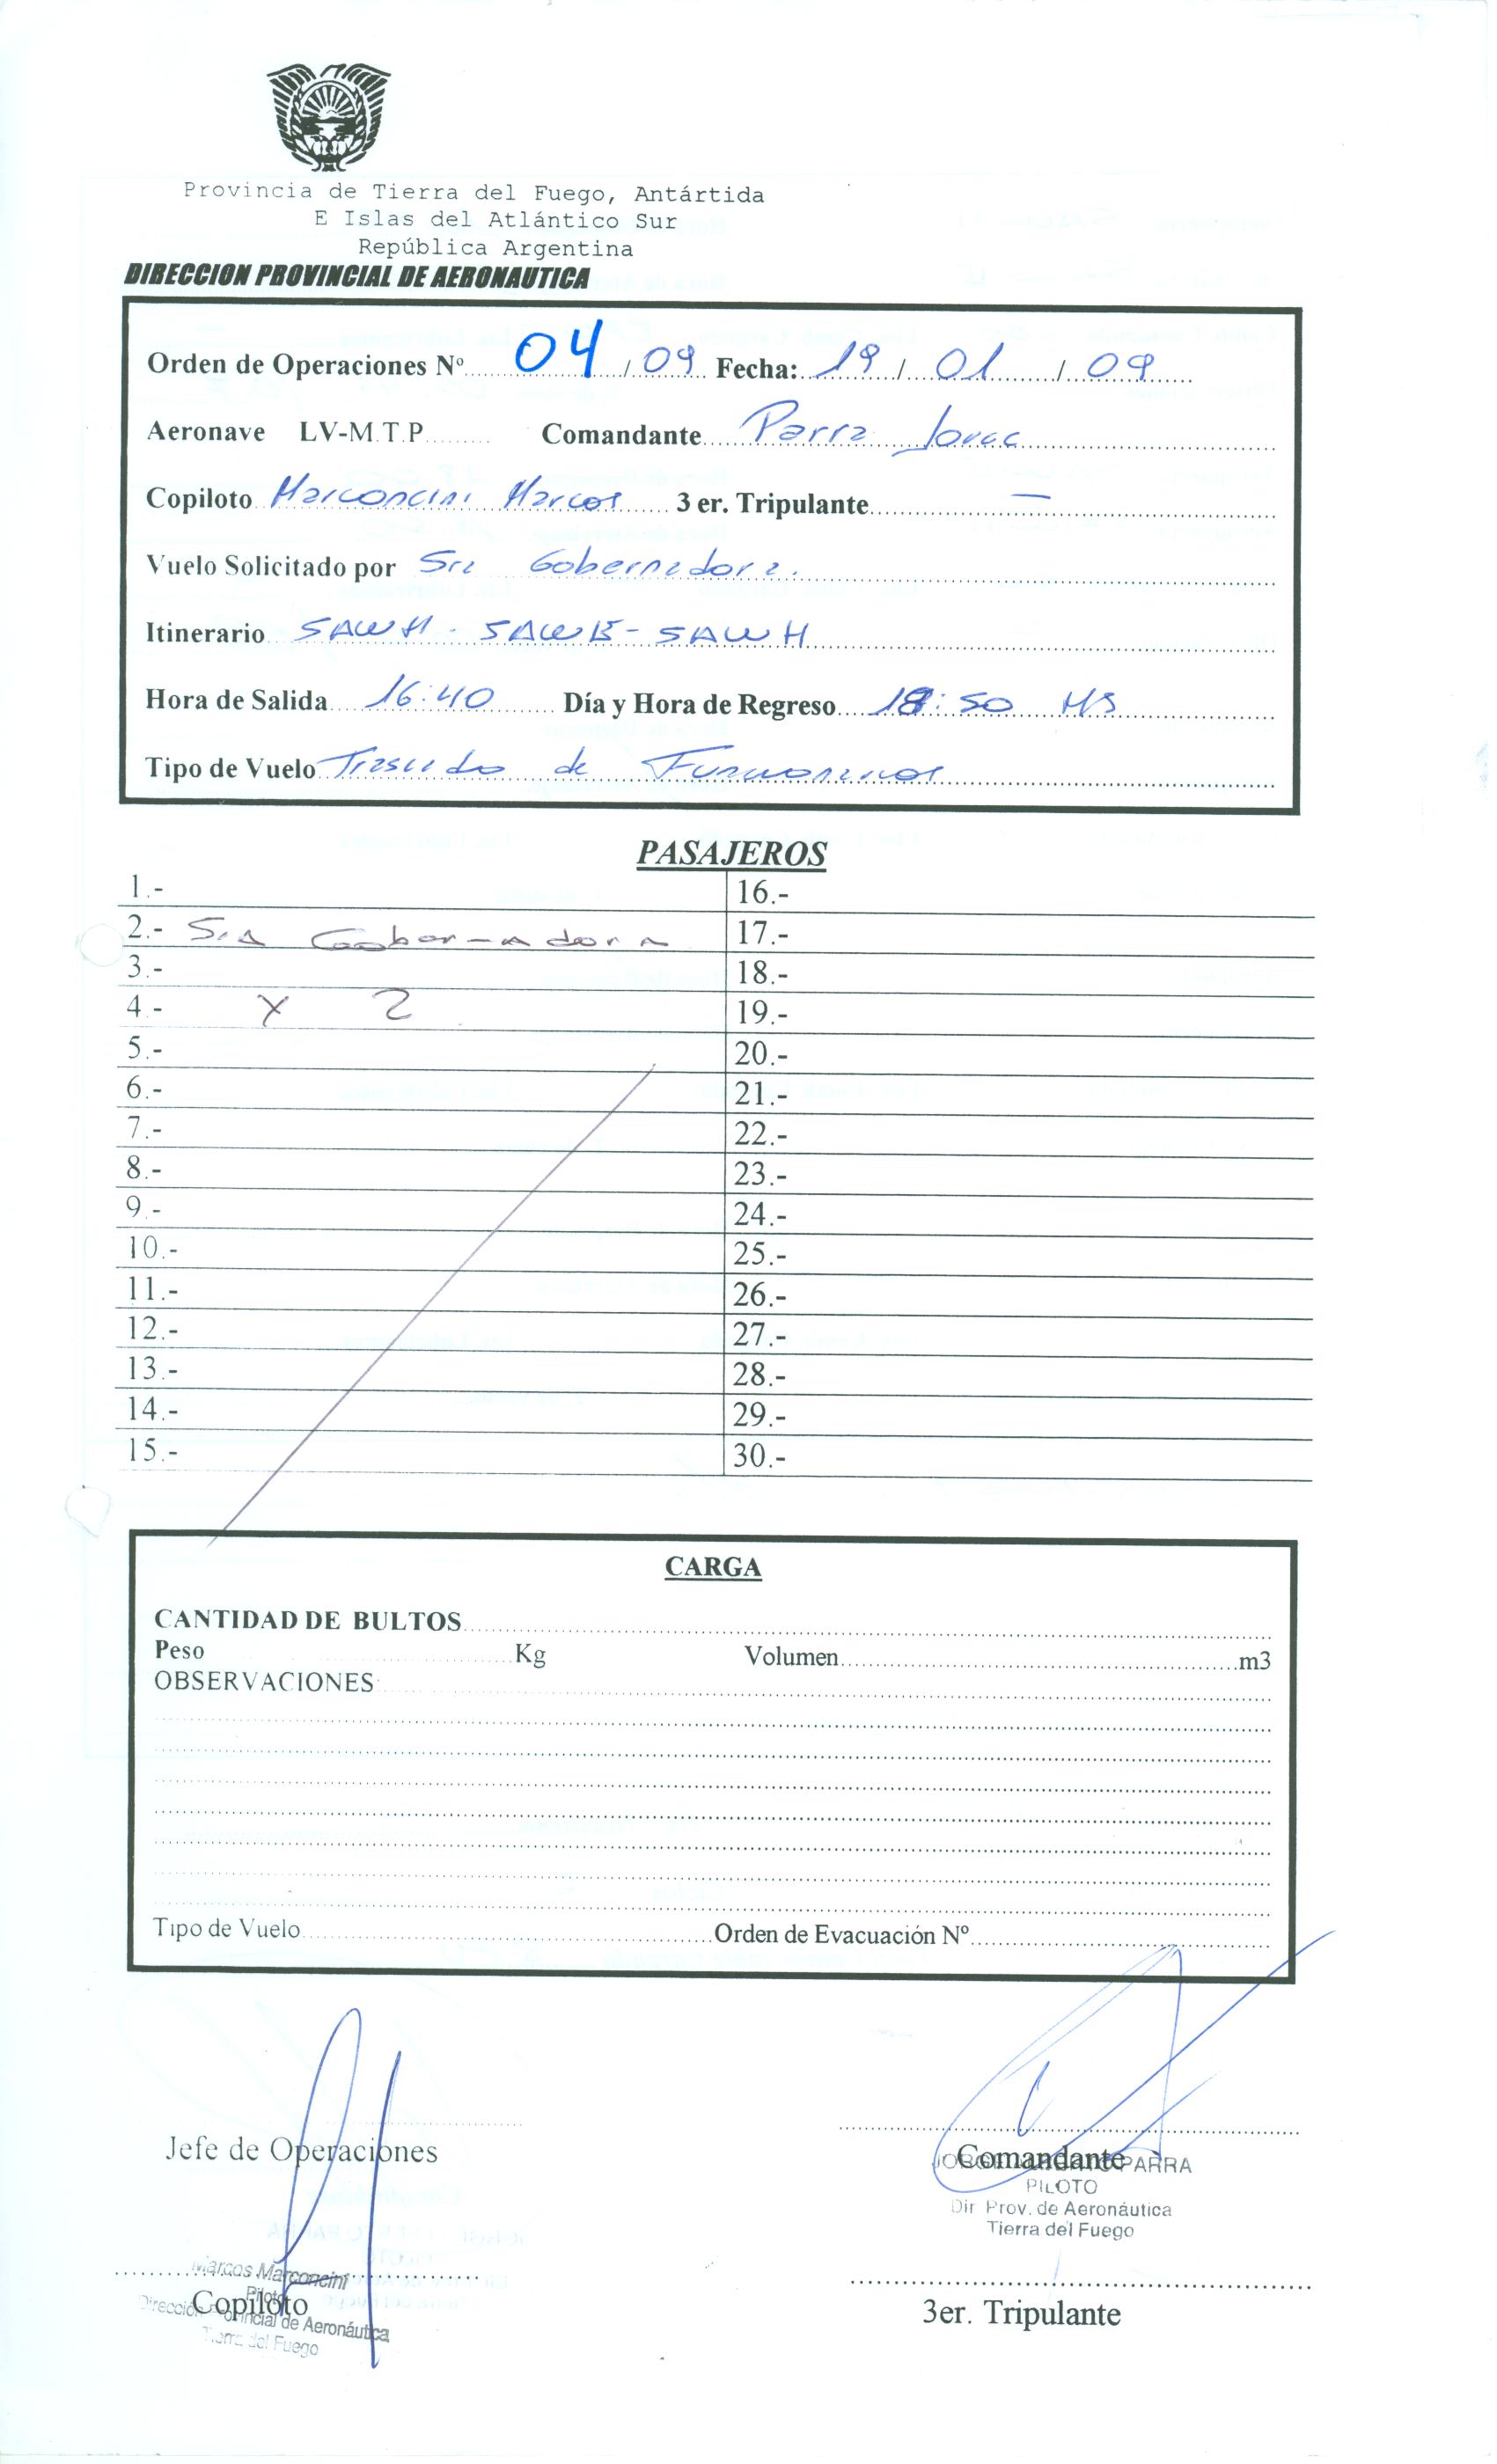 Provincia de Tierra del Fuego, Antártida
E Islas del Atlántico Sur
República Argentina
DIRECCION PROVINCIAL DE AERONAUTICA
Orden de Operaciones Nº 04 / 09 Fecha: 19 / 01 / 09
Aeronave LV-M.T.P. Comandante Parra Jorge
Copiloto Marconcini Marcos 3 er. Tripulante —
Vuelo Solicitado por Sra Gobernadora.
Itinerario SAWH - SAWE - SAWH
Hora de Salida 16:40 Día y Hora de Regreso 18:50 HS
Tipo de Vuelo Traslado de Funcionarios
PASAJEROS
1.- 16.-
2.- Sra Gobernadora 17.-
3.- 18.-
4.- x 2 19.-
5.- 20.-
6.- 21.-
7.- 22.-
8.- 23.-
9.- 24.-
10.- 25.-
11.- 26.-
12.- 27.-
13.- 28.-
14.- 29.-
15.- 30.-
CARGA
CANTIDAD DE BULTOS
Peso Kg Volumen m3
OBSERVACIONES:
Tipo de Vuelo Orden de Evacuación Nº
Jefe de Operaciones Comandante
PARRA
PILOTO
Dir. Prov. de Aeronáutica
Tierra del Fuego
Marcos Marconcini
Piloto
Copiloto
Dirección Provincial de Aeronáutica
Tierra del Fuego
3er. Tripulante